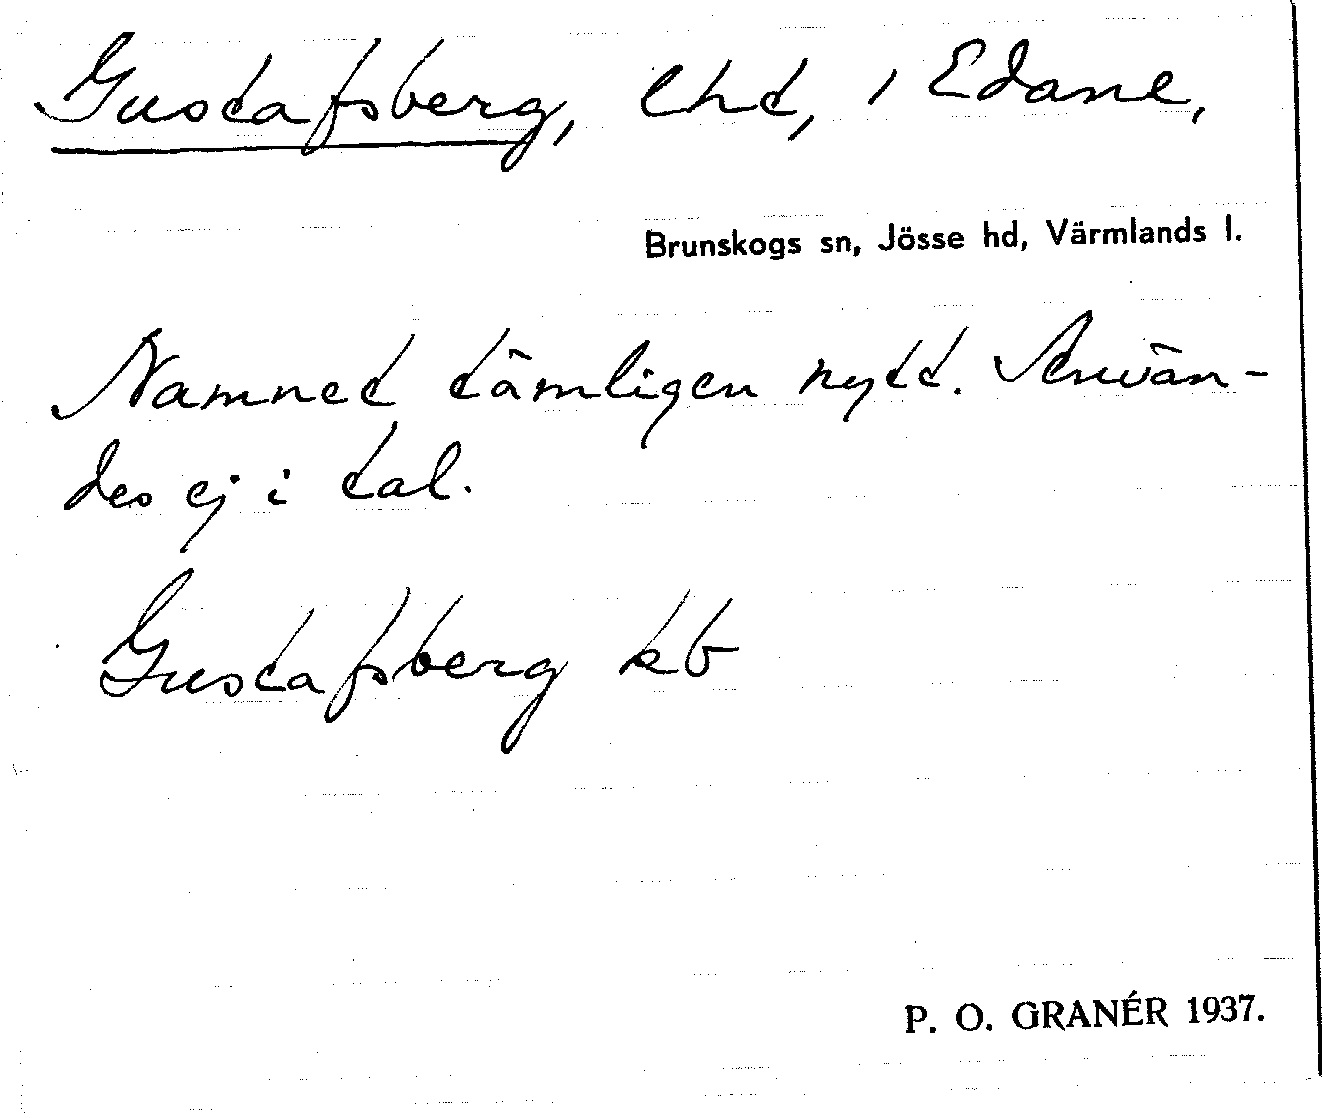 Gustafsberg, lht, i Edane,
Brunskogs sn, Jösse hd, Värmlands l.
Namnet tämligen nytt. Använ-
des ej i tal.
Gustafsberg kb
P. O. GRANÉR 1937.